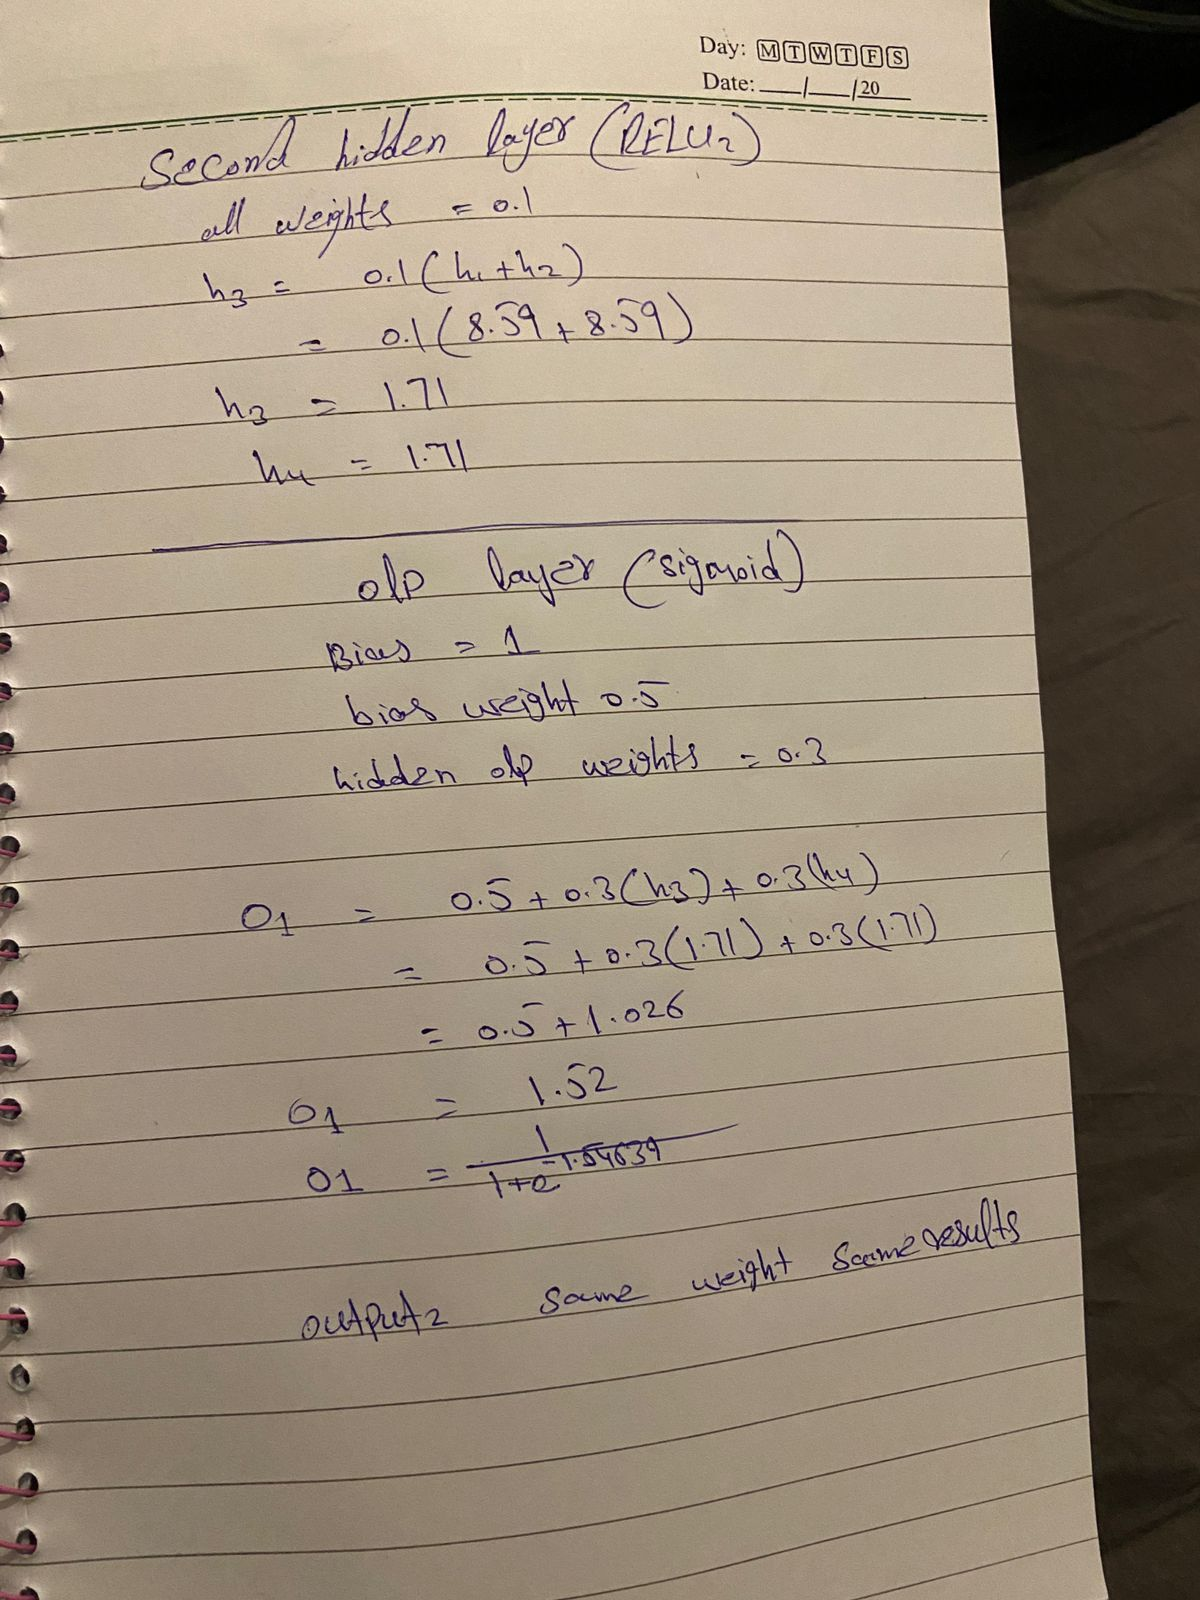 Day: M T W T F S
Date: __/__/20__
Second hidden layer (RELU2)
all weights = 0.1
h3 = 0.1 (h1 + h2)
= 0.1 (8.59 + 8.59)
h3 = 1.71
h4 = 1.71
o/p layer (sigmoid)
Bias = 1
bias weight 0.5
hidden o/p weights = 0.3
O1 = 0.5 + 0.3 (h3) + 0.3 (h4)
= 0.5 + 0.3 (1.71) + 0.3 (1.71)
= 0.5 + 1.026
O1 = 1.52
O1 = 1 / 1+e^-1.54639
output2 same weight same results